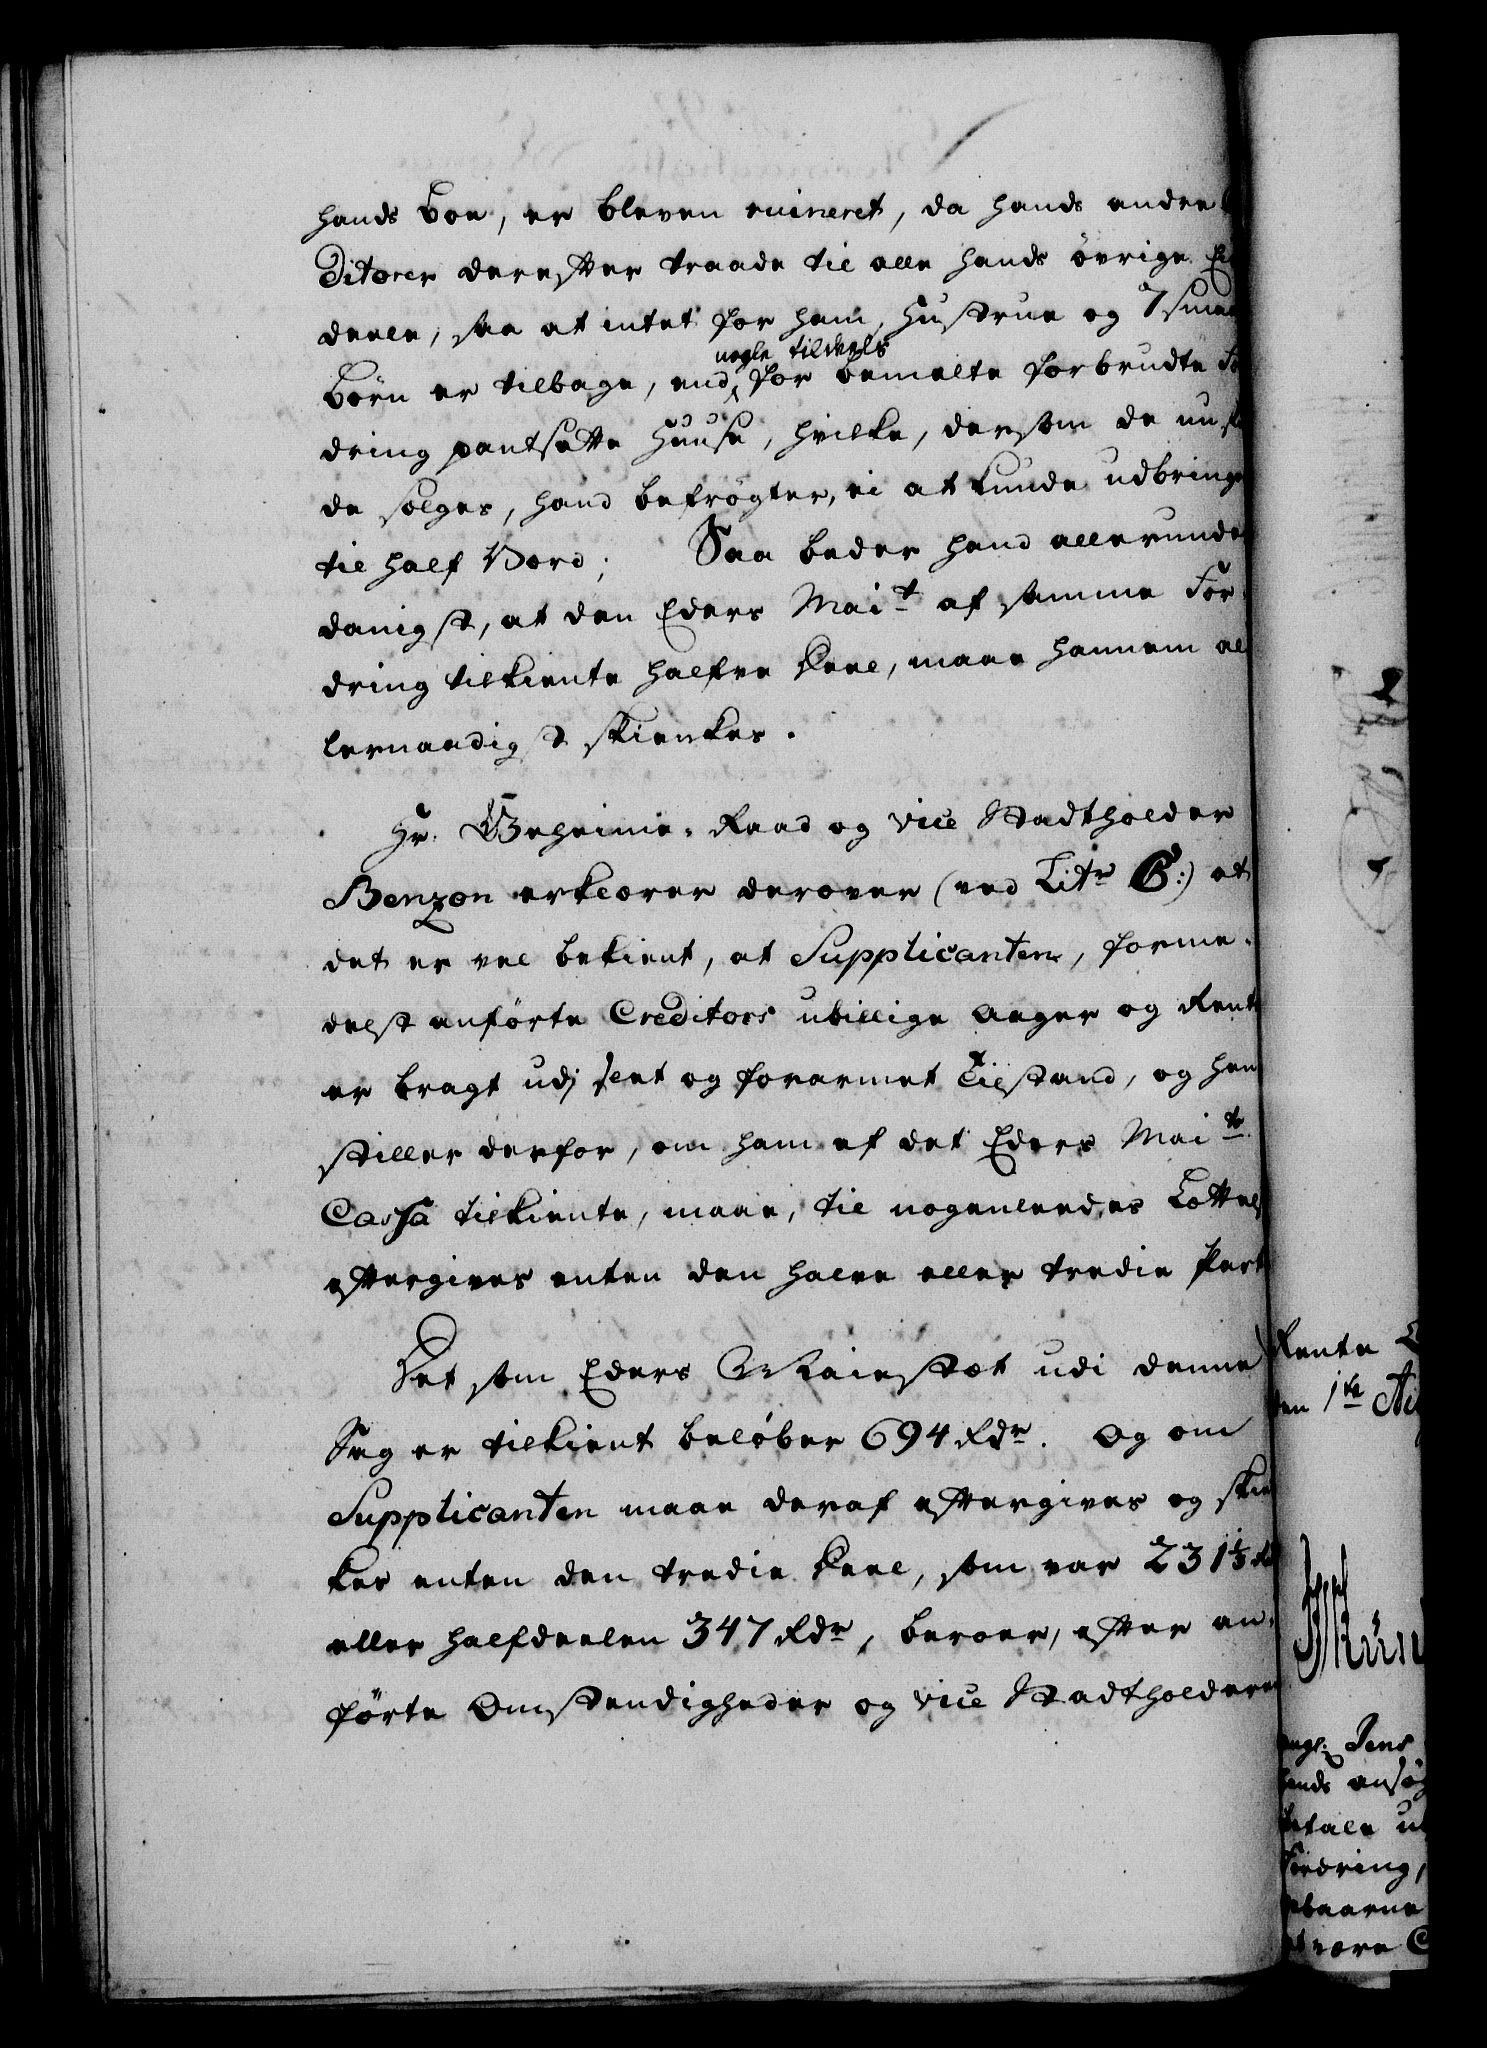 hands Boe, er bleven ruineret, da hands andre
ditorer derefter traade til alle hands övrige Ei
deele, saa at intet for ham, Hustrue og 7 smaa
nogle tildeels
Börn er tilbage, end for bemelte forbrudte
dring pantsatte Huuse, hvilke, dersom de nu
de sælges, hand befrögter, ei at kunde udbringe
til half Værd; Saa beder hand allerunder
danigst, at den Eders Mait af samme For-
dring tilkiente halfve Deel, maae hannem al
lernaadigst skienkes.
Hr. Geheime-Raad og Vice Stadtholder
Benzon erklærer derover (ved Litr B:) at
det er vel bekient, at Supplicanten, forme-
delst anförte Creditors ubillige Aager og Rente
er bragt udj slet og forarmet Tilstand, og hen
stiller derfor, om ham af det Eders Maits
Cassa tilkiente, maae, til nogenleedes Lettels
eftergives enten den halve eller tredie Part
Det som Eders Maiestæt udi denne
Sag er tilkient belöber 694 Rdr. Og om
Supplicanten maae deraf eftergives og skien
kes enten den tredie Deel, som var 231 1/3 Rd
eller halfdeelen 347 Rdr, beroer, efter an-
förte Omstændigheder og Vice Stadtholdere
Rente
den 1te Au
Jens
hands ansög
betale
Fordring,
være